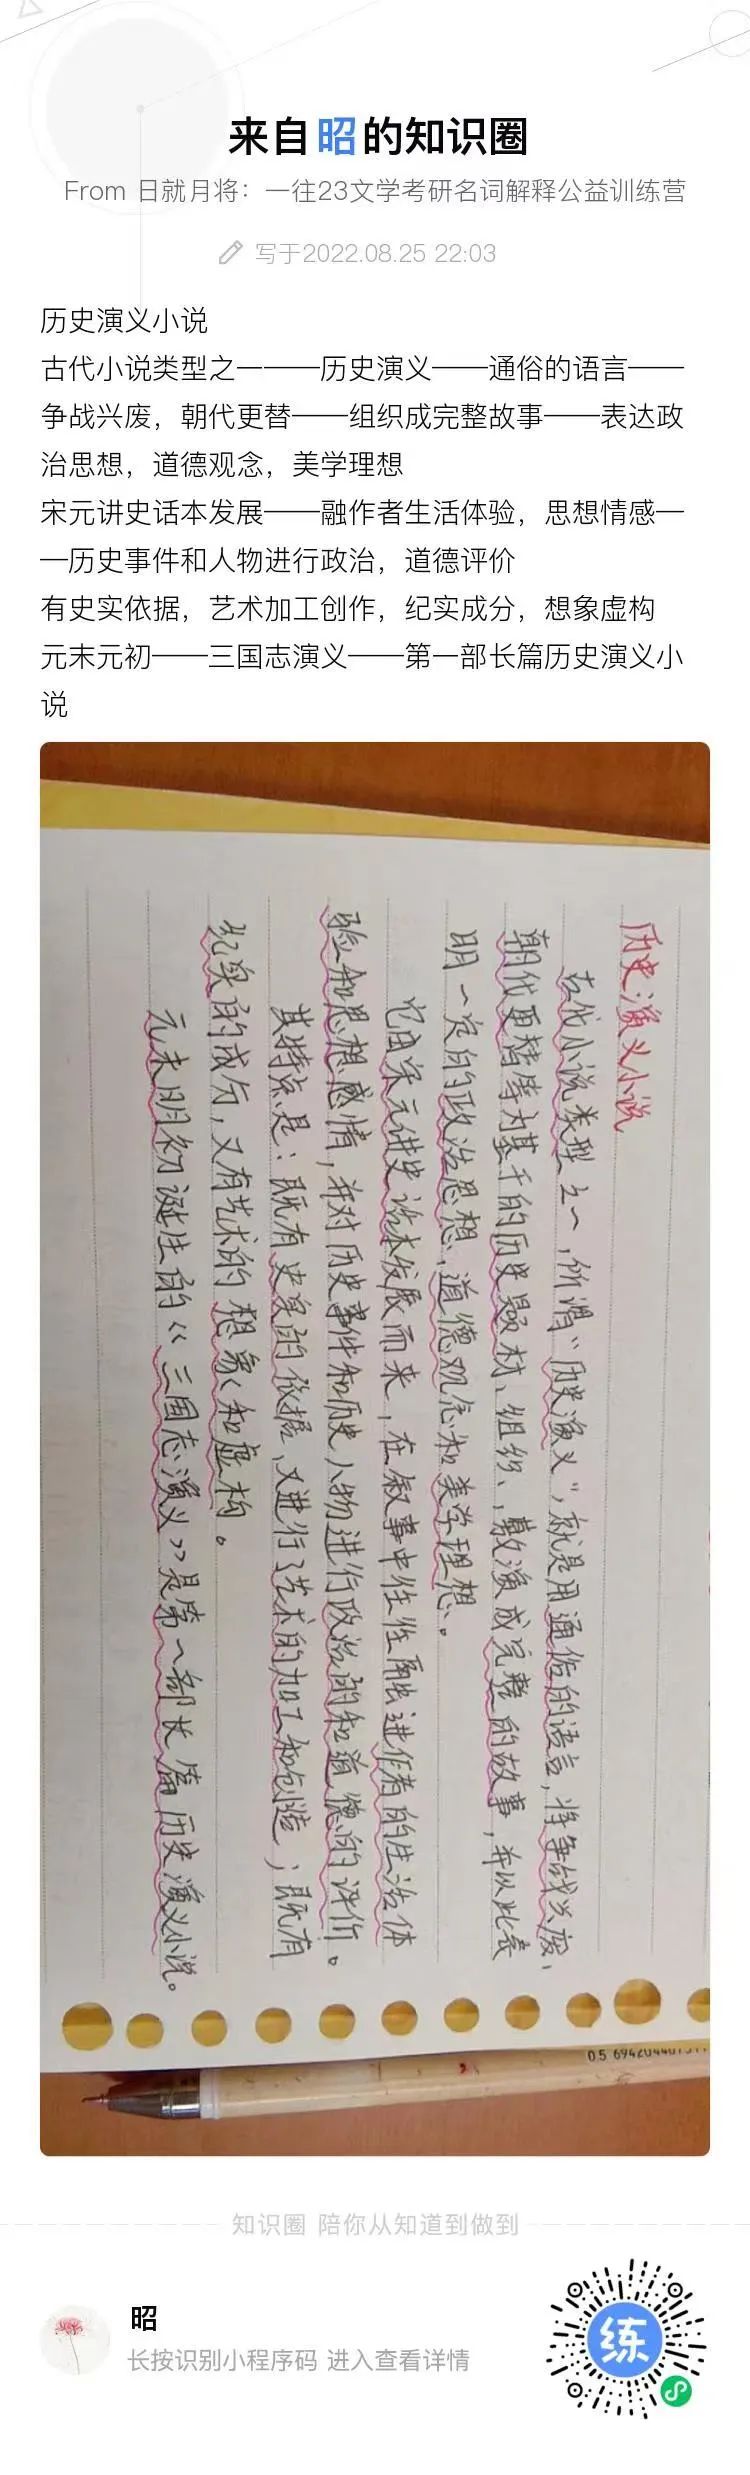 来自昭的知识圈
From 日就月将：一往23文学考研名词解释公益训练营
写于2022.08.25 22:03
历史演义小说
古代小说类型之一——历史演义——通俗的语言——
争战兴废，朝代更替——组织成完整故事——表达政
治思想，道德观念，美学理想
宋元讲史话本发展——融作者生活体验，思想情感—
—历史事件和人物进行政治，道德评价
有史实依据，艺术加工创作，纪实成分，想象虚构
元末元初——三国志演义——第一部长篇历史演义小
说
历史演义小说
古代小说类型之一，所谓“历史演义”，就是用通俗的语言，将争战兴废、
朝代更替等为基干的历史题材、组织、敷演成完整的故事，并以此表
明一定的政治思想、道德观念和美学理想。
它由宋元讲史话本发展而来，在叙事中往往融进作者的生活体
验和思想感情，并对历史事件和历史人物进行政治的和道德的评价。
其特点是：既有史实的依据，又进行了艺术的加工和创造；既有
纪实的成分，又有艺术的想象和虚构。
元末明初诞生的《三国志演义》是第一部长篇历史演义小说。
0.5
知识圈 陪你从知道到做到
昭
长按识别小程序码 进入查看详情
练